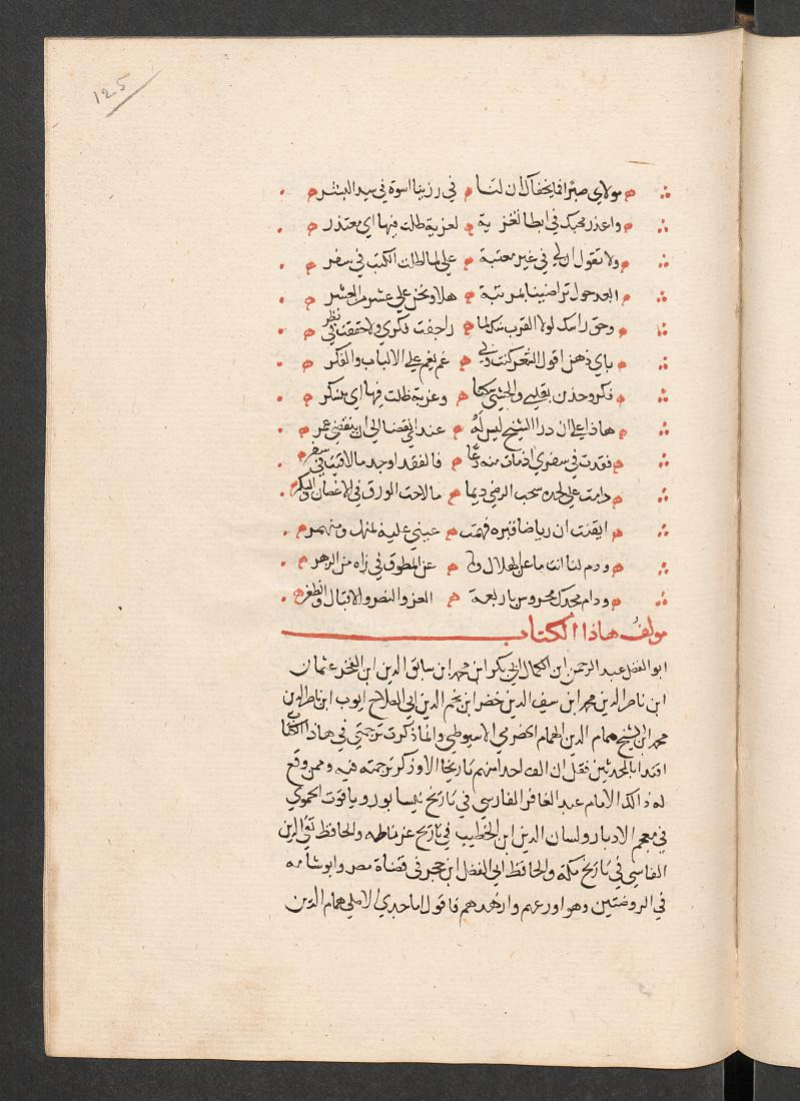 125
مولاي صبرا فما يخفاك ان لنا في رزينا اسوة في سيد البشر
واعذر محبك في ابطا لغزية لعزية طلت فيها اي معتذر
ولا تقول الي في غير معتبة علي لما طال الكتب في سفر
ابعد حول تراضينا بمرتبة هلا ونحن علي عشر من العشر
وحق راسك لولا القرب منك لما راجفت فكري ولا حققت في نظر
باي ذهن اقول الشعر كنت ولي غم يغم علي الالباب والفكر
فكر وحزن بقلبي والحشي سكنا وغربة ظلت فيها اي منكر
هاذا علي ان درا الشيخ ليس له عندي انقضا الي ان ينقضي عمر
فقدت في سفري اذ مات منه دعا فالفقد اوجد ما لاقيت في سفر
دامت علي لحده سحب الرضي ديما ما لاحت الورق في الاغصان والبكر
ايقنت ان رياضا قبره فهمت عيني عليه بمنهل ومنهمر
ودم لنا انت ما عن الهلال وما عن المطوق في زاه من الزهر
ودام مجدك محروس باربعة العز والنصر والاقبال والظفر
مولف هاذا الكتاب
ابو الفضل عبد الرحمن ابن الكمال ابي بكر ابن محمد ابن سابق الدين ابن الفخر عثمان
ابن ناظر الدين محمد ابن سيف الدين خضر ابن نجم الدين ابي الصلاح ايوب ابن ناصر الدين
محمد ابن الشيخ همام الدين الهمام الخضري الاسيوطي وانما ذكرت ترجمتي في هاذا الكتاب
اقتدا بالمحدثين فقل ان الف احد منهم تاريخا الا وذكر ترجمته فيه وممن وقع
له ذالك الامام عبد الغافر الفارسي في تاريخ نيسابور وياقوت الحموي
في معجم الادبا ولسان الدين ابن الخطيب في تاريخ غرناطه والحافظ تقي الدين
الفاسي في تاريخ مكة والحافظ ابي الفضل ابن حجر في قضاة مصر وابو شامه
في الروضتين وهو اورعهم وازهدهم فاقول اما جدي الاعلي همام الدين